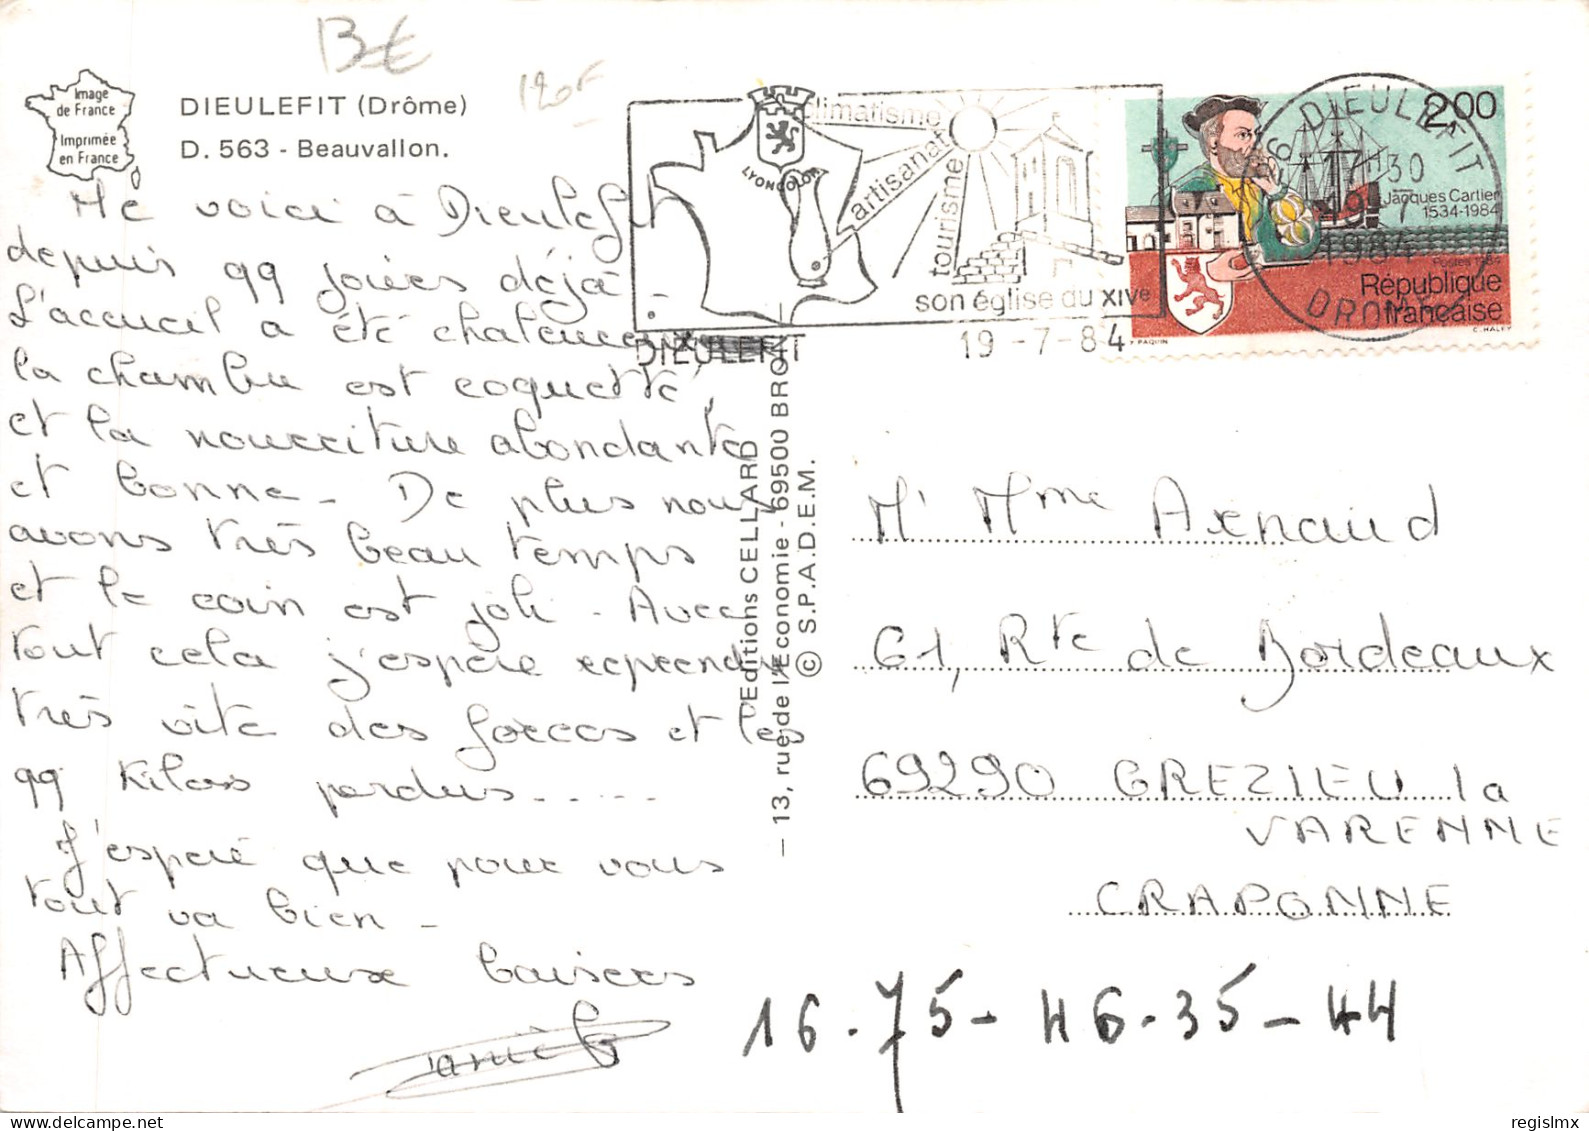 B €
120F
Image
de France
Imprimée
en France
DIEULEFIT (Drôme)
D. 563 - Beauvallon.
Me voici à Dieulefit
depuis 99 jours déjà -
L'accueil a été chaleureux,
la chambre est coquette,
et la nourriture abondante
et bonne - De plus nous
avons très beau temps
et le coin est joli - Avec
tout cela j'espère reprendre
très vite des forces et les
99 Kilos perdus.....
J'espère que pour vous
tout va bien -
Affectueux baisers
Editions CELLARD
13, rue de l'Economie - 69500 BRON
© S.P.A.D.E.M.
LYONCOLOR
climatisme
artisanat
tourisme
son église du XIVe
DIEULEFIT
19 -7-84
26 DIEULEFIT
17H30
1984
DROME
2,00
Jacques Cartier
1534-1984
Postes 1984
République
française
Y. PAQUIN
C. HALEY
Mr Mme Arnaud
61, Rte de Bordeaux
69290 GREZIEU la
VARENNE
CRAPONNE
16-75-46-35-44
regislmx